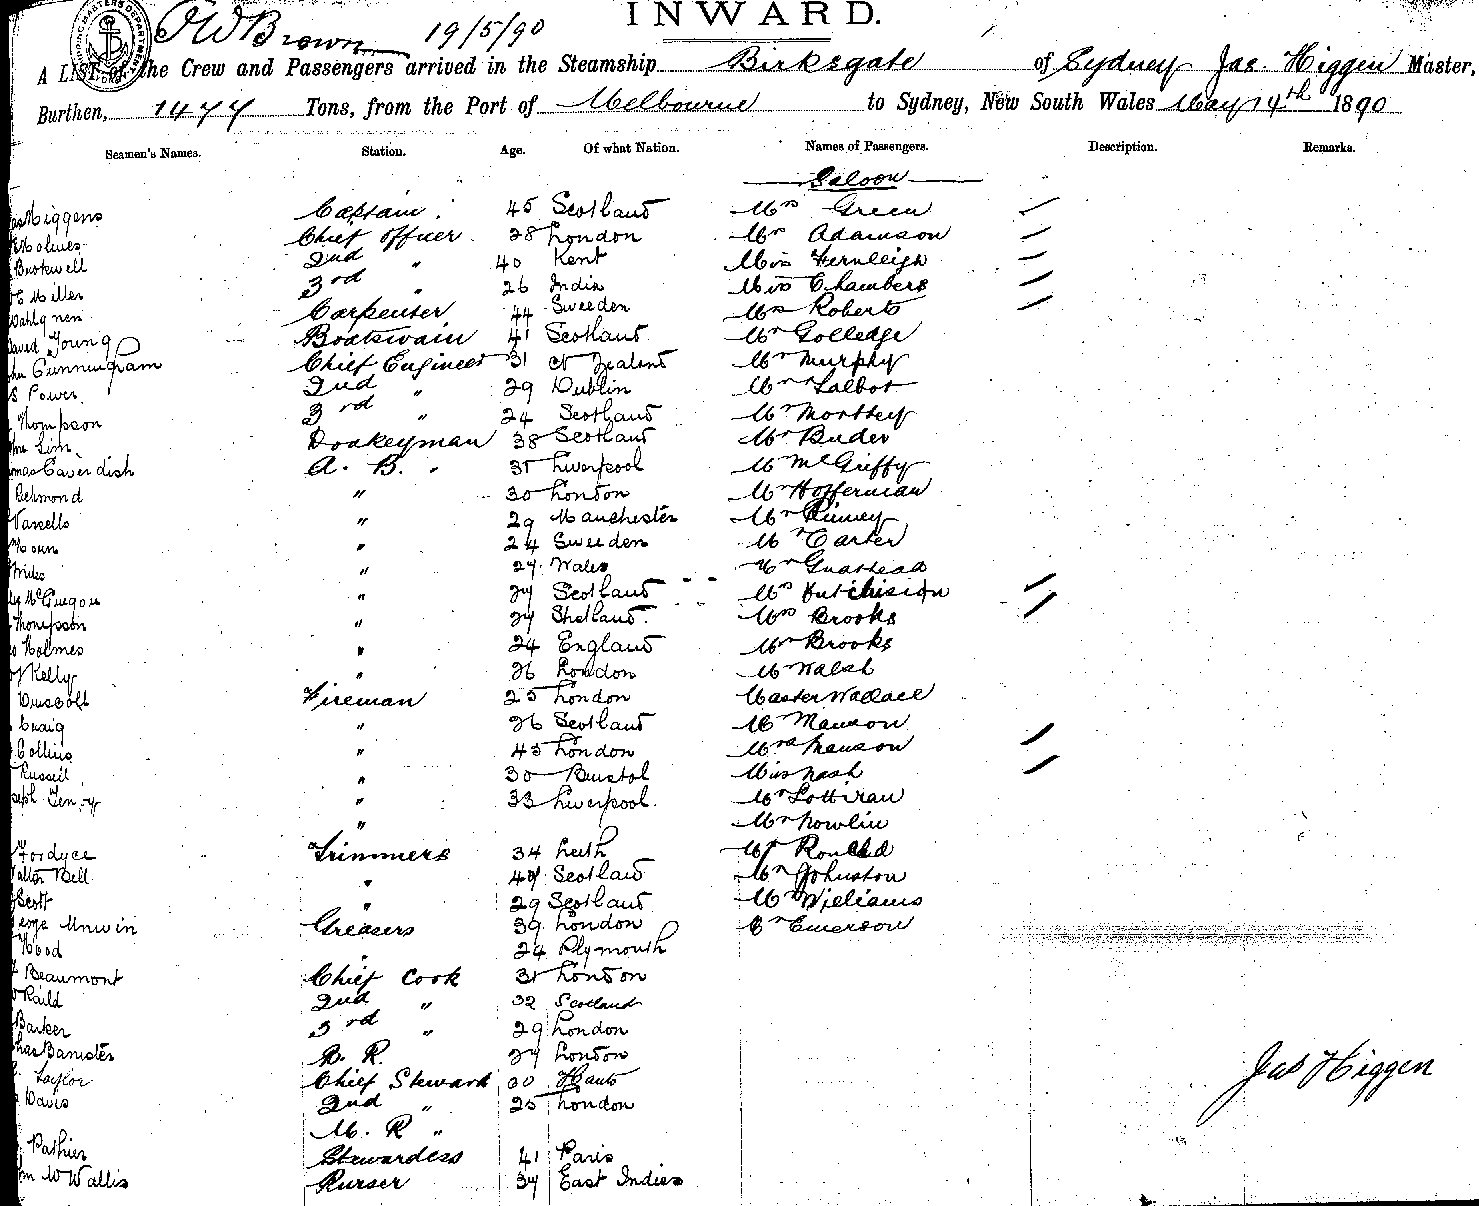 INWARD.
19/5/90
A LIST of the Crew and Passengers arrived in the Steamship Birksgate of Sydney Jas. Higgen Master,
Burthen, 1477 Tons, from the Port of Melbourne to Sydney, New South Wales May 19th 1890
Seamen's Names. Station. Age. Of what Nation. Names of Passengers. Description. Remarks.
Saloon
Higgens Captain 45 Scotland Mrs Green
Holmes Chief Officer 28 London Mrs Adamson
Buskwell 2nd " 40 Kent Miss Fernleigh
Miller 3rd " 26 India Miss Chambers
Carpenter 44 Sweeden Mrs Roberts
Young Boatswain 41 Scotland Mr Golledge
Cunningham Chief Engineer 31 N Zealand Mr Murphy
Power 2nd " 29 Dublin Mr Talbot
Thompson 3rd " 24 Scotland Mr
Sim Donkeyman 38 Scotland Mr
Cavendish A. B. 35 Liverpool Mr McGriffy
Redmond " 30 London Mr Hofferman
" 29 Manchester Mr
" 24 Sweeden Mr Carter
" 27 Wales Mr
McGregor " 27 Scotland Mrs Hutchision
Thompson " 27 Shetland. Mrs Brooks
Holmes " 24 England Mr Brooks
Kelly " 26 London Mr Walsh
Driscoll Fireman 25 London Master Wallace
Craig " 26 Scotland Mr Manson
Collins " 45 London Mrs Manson
Russell " 30 Bristol Miss Nash
" 33 Liverpool. Mr
" Mr Nowlin
Fordyce Trimmers 34 Leith Mr
Bell " 47 Scotland Mr Johnston
Scott " 29 Scotland Mr Williams
Unwin Greasers 39 London Emerson
Hood " 24 Plymouth
Beaumont Chief Cook 35 London
2nd " 32 Scotland
Barker 3rd " 29 London
Banister 27 London
Taylor Chief Steward 30 Hants
Davis 2nd " 25 London
M. R "
Stewardess 41 Paris
W Wallis Purser 37 East Indies
Jas Higgen